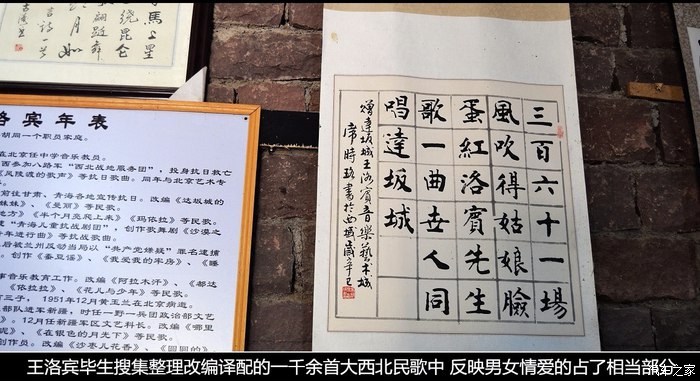 宾年表
胡同一个职员家庭。
在北京任中学音乐教员。
西参加八路军“西北战地服务团”，投身抗日救亡
《风陵渡的歌声》等抗日歌曲。同年与北京艺术专
前往甘肃、青海各地宣传抗日。改编《达坂城的
妹妹》、《曼丽》等民歌。
地方》《半个月亮爬上来》《玛依拉》等民歌。
青海儿童抗战剧团”，创作歌舞剧《沙漠之
年进行曲》等抗战歌曲。
后被兰州反动当局以“共产党嫌疑”罪名逮捕
。创作《蚕豆谣》、《我爱我的牢房》、《睡
事音乐教育工作。改编《阿拉木汗》、《都达
《依拉拉》、《花儿与少年》等民歌。
育三子，1951年12月黄玉兰在北京病逝。
部队进军新疆，时任一野一兵团政治部文艺
12月任新疆军区文艺科长。改编《哪里
》、《在银色的月光下》等民歌。
创作《沙枣儿花香》、
三百六十一場
風吹得姑娘臉
蛋紅洛賓先生
歌一曲世人同
唱達坂城
贈達坂城王洛賓音樂藝术城
王洛宾毕生搜集整理改编译配的一千余首大西北民歌中 反映男女情爱的占了相当部分